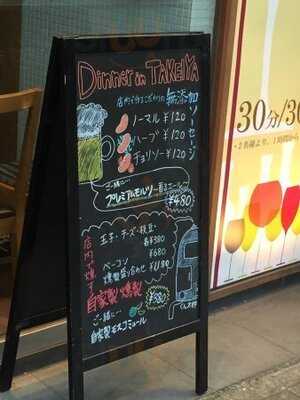 Dinner in TAKEIYA
店内で作るこだわりの無添加
ソーセージ
ノーマル ¥120
ハーブ ¥120
チョリソー ¥120
ご一緒に…
プレミアムモルツ
¥480
店内で燻す
自家製燻製
玉子・チーズ・枝豆
各¥380
¥680
ベーコン
燻製盛り合わせ ¥1180
ご一緒に…
¥580
自家製モスコミュール
30分/30